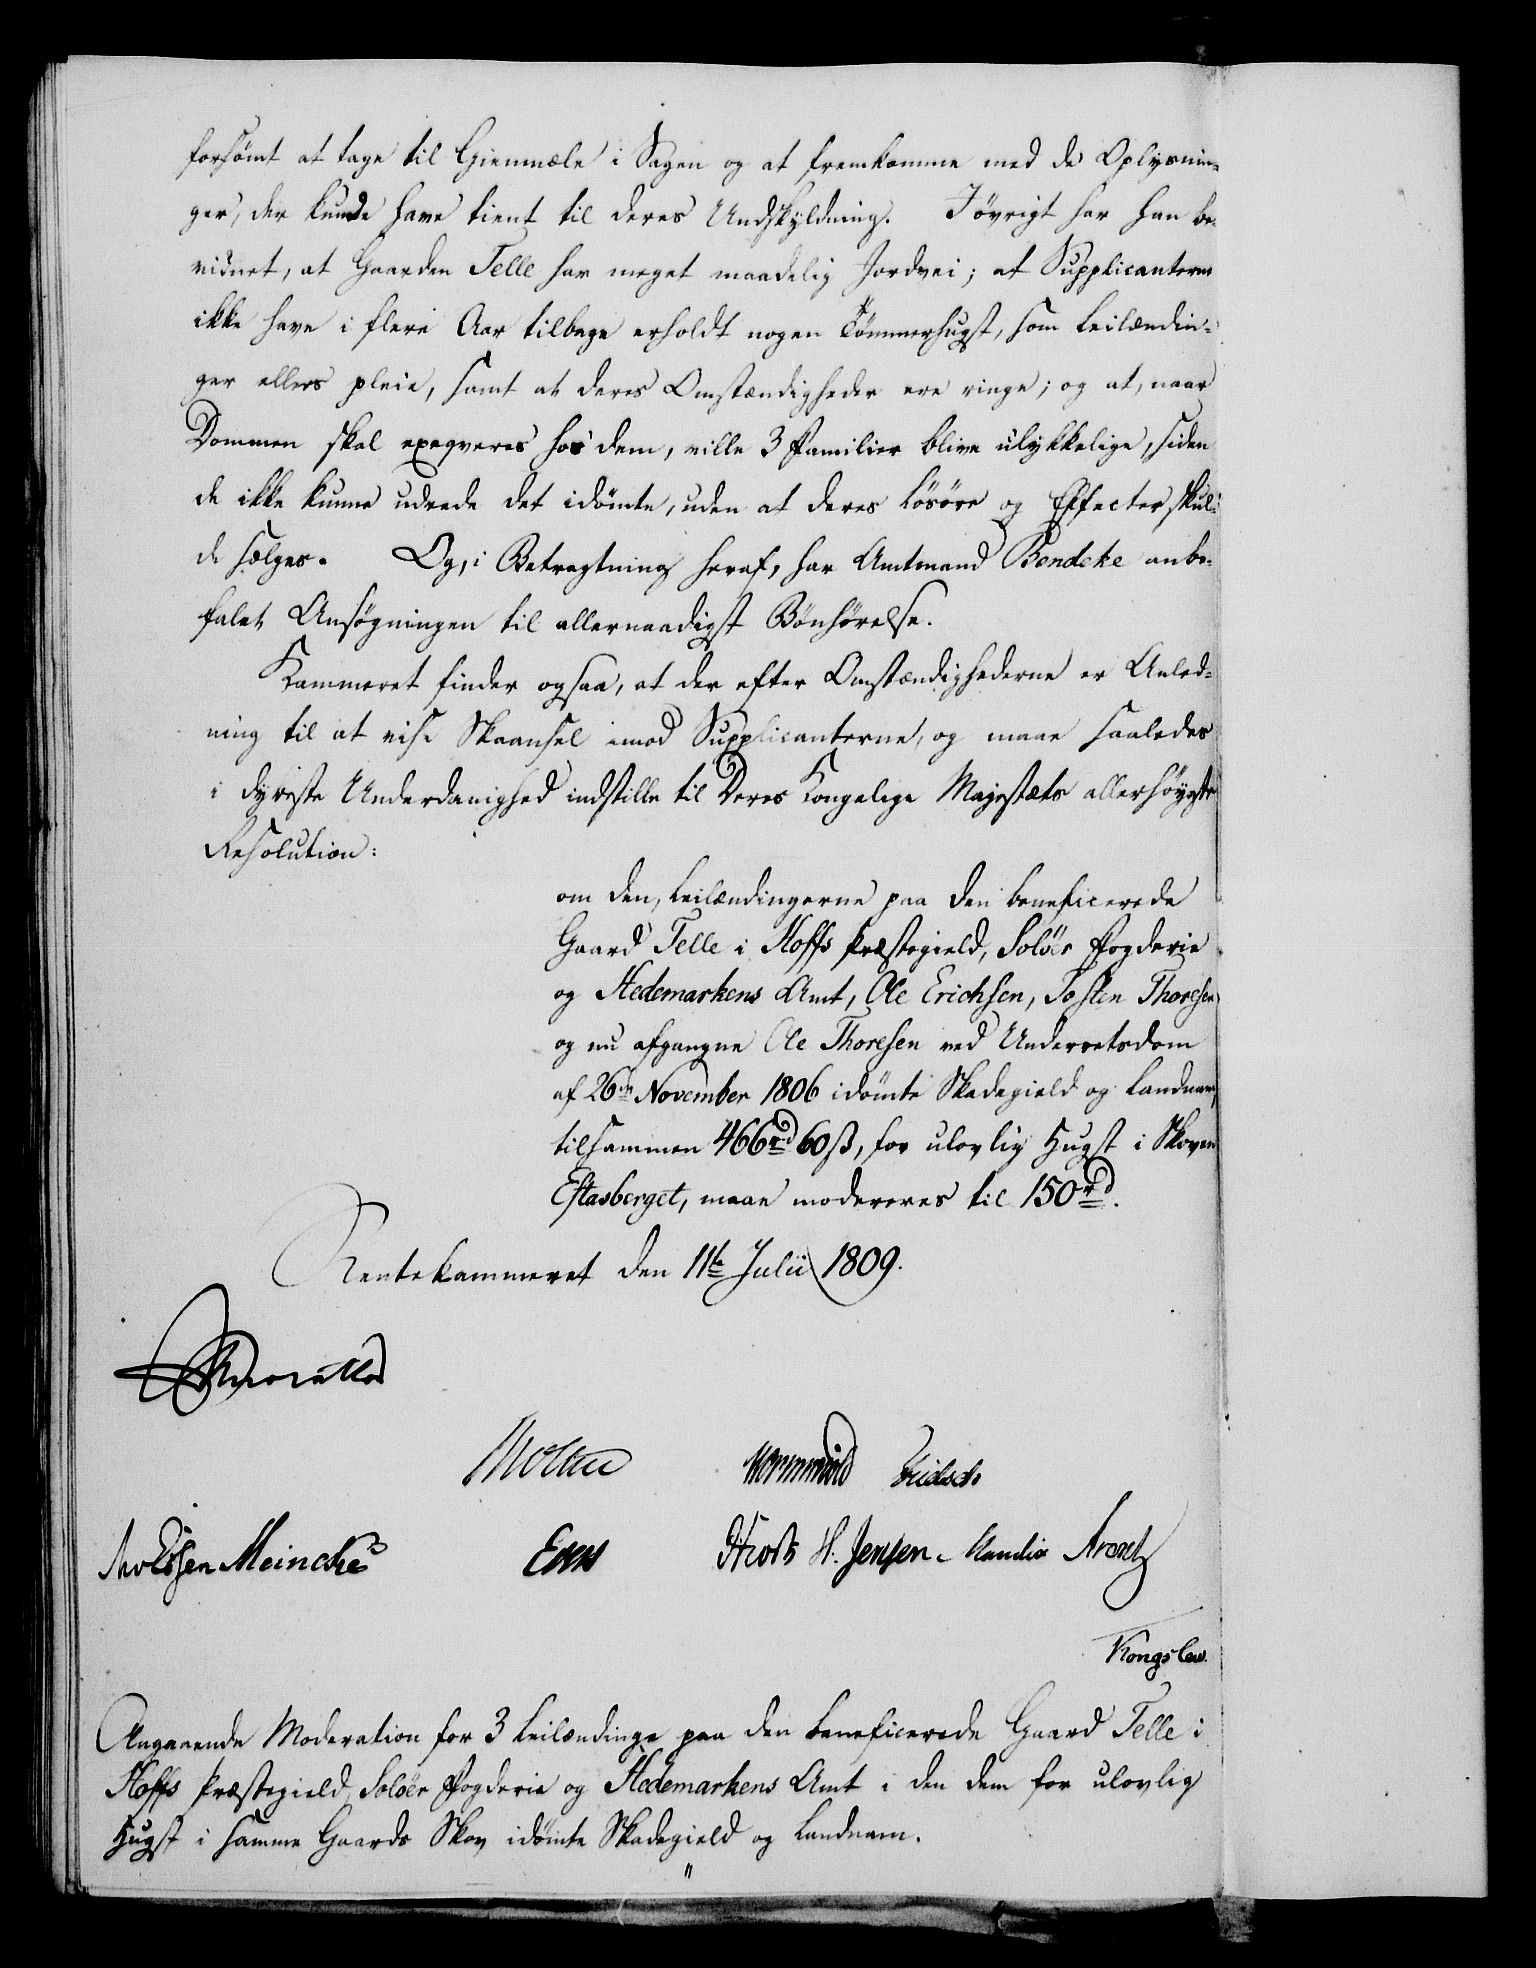 forsømt at tage til Giennæle i Sagen og at fremkomme med de Oplysnin-
ger, der kunde have tient til deres Undskyldning. Iøvrigt har han be-
vidnet, at Gaarden Telle har meget maadelig Jordvei; at Supplicanterne
ikke have i flere Aar tilbage erholdt nogen Tømmerhugst, som Leilændin-
ger ellers pleie, samt at deres Omstændigheder ere ringe; og at, naar
Dommen skal exeqveres hos dem, ville 3 Familier blive ulykkelige, siden
de ikke kunne udrede det idømte, uden at deres Løsøre og Effecter skul-
de sælges. Og, i Betragtning heraf, har Amtmand Bendeke anbe-
falet Ansøgningen til allernaadigst Bønhørelse.
Kammeret finder ogsaa, at der efter Omstændighederne er Anled-
ning til at vise Skaansel imod Supplicanterne, og maae saaledes
i dybeste Underdanighed indstille til Deres Kongelige Majestæts allerhøyeste
Resolution:
om den, Leilændingerne paa den beneficerede
Gaard Telle i Hoffs Præstegield, Soløer Fogderie
og Hedemarkens Amt, Ole Erichsen, Josten Thoresen
og nu afgangne Ole Thoresen ved Underretsdom
af 26de November 1806 idømte Skadegield og Landnam,
tilsammen 466rd 60ß, for ulovlig Hugst i Skoven
Eftasberget, maae modereres til 150rd.
Rentekammeret den 11te Julii 1809.
Moltke
Wormskiold
Meincke Hiorth H. Jensen
Kongslew.
Angaaende Moderation for 3 Leilændinge paa den beneficerede Gaard Telle i
Hoffs Præstegield Soløer Fogderie og Hedemarkens Amt i den dem for ulovlig
Hugst i samme Gaards Skov idømte Skadegield og Landnam.